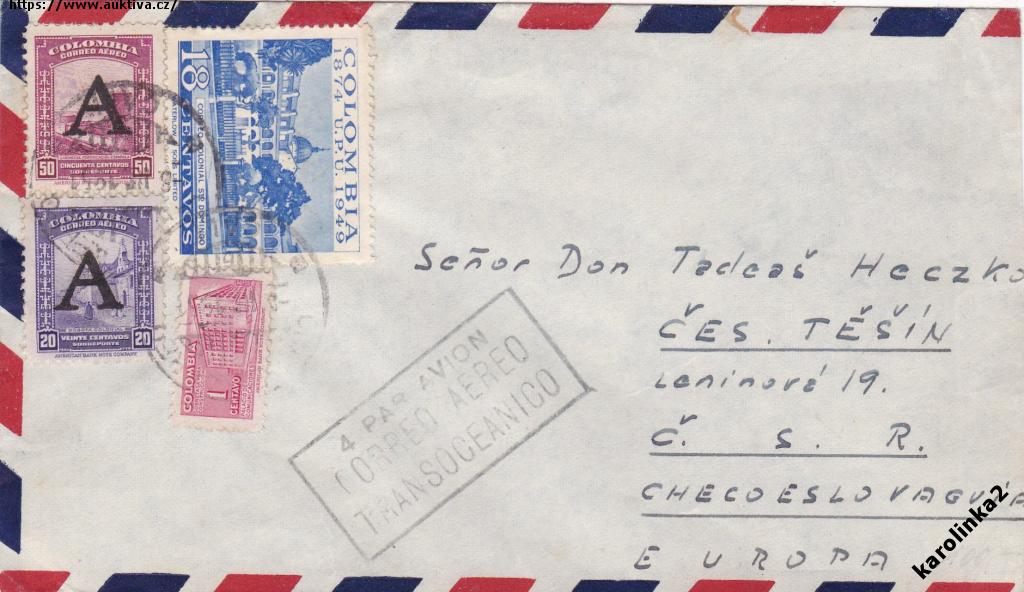 https://www.auktiva.cz/
COLOMBIA
CORREO AÉREO
A
50 CINCUENTA CENTAVOS 50
SOBREPORTE
COLOMBIA
1874 U.P.U. 1949
18
CENTAVOS
COLOMBIA
CORREO AÉREO
A
BOGOTA COLONIAL
20 VEINTE CENTAVOS 20
SOBREPORTE
AMERICAN BANK NOTE COMPANY
COLOMBIA
1
CENTAVO
4 PAR AVION
CORREO AEREO
TRANSOCEANICO
Señor Don Tadeaš Heczko
ČES. TĚŠÍN
Leninová 19.
Č. S. R.
CHECOESLOVAQUIA
EUROPA
karolinka2